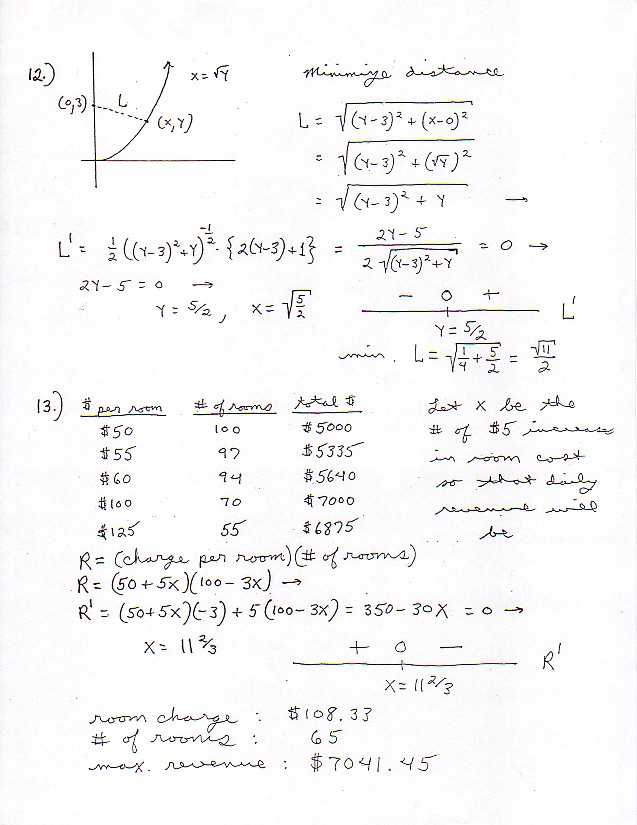 12.)
x = √y
(0,3)
L
(x,y)
Minimize distance
L = √((y-3)² + (x-0)²)
= √((y-3)² + (√y)²)
= √((y-3)² + y) →
L' = 1/2 ((y-3)²+y)^(-1/2) · {2(y-3)+1} = (2y-5)/(2√((y-3)²+y)) = 0 →
2y - 5 = 0 →
y = 5/2 , x = √(5/2)
− 0 +
L'
y = 5/2
min. L = √(1/4 + 5/2) = √11/2
13.) $ per room # of rooms total $
$50 100 $5000
$55 97 $5335
$60 94 $5640
$100 70 $7000
$125 55 $6875
Let x be the
# of $5 increases
in room cost
so that daily
revenue will
be
R = (charge per room)(# of rooms)
R = (50 + 5x)(100 - 3x) →
R' = (50+5x)(-3) + 5(100-3x) = 350 - 30x = 0 →
x = 11 2/3
+ 0 −
R'
x = 11 2/3
room charge : $108.33
# of rooms : 65
max. revenue : $7041.45